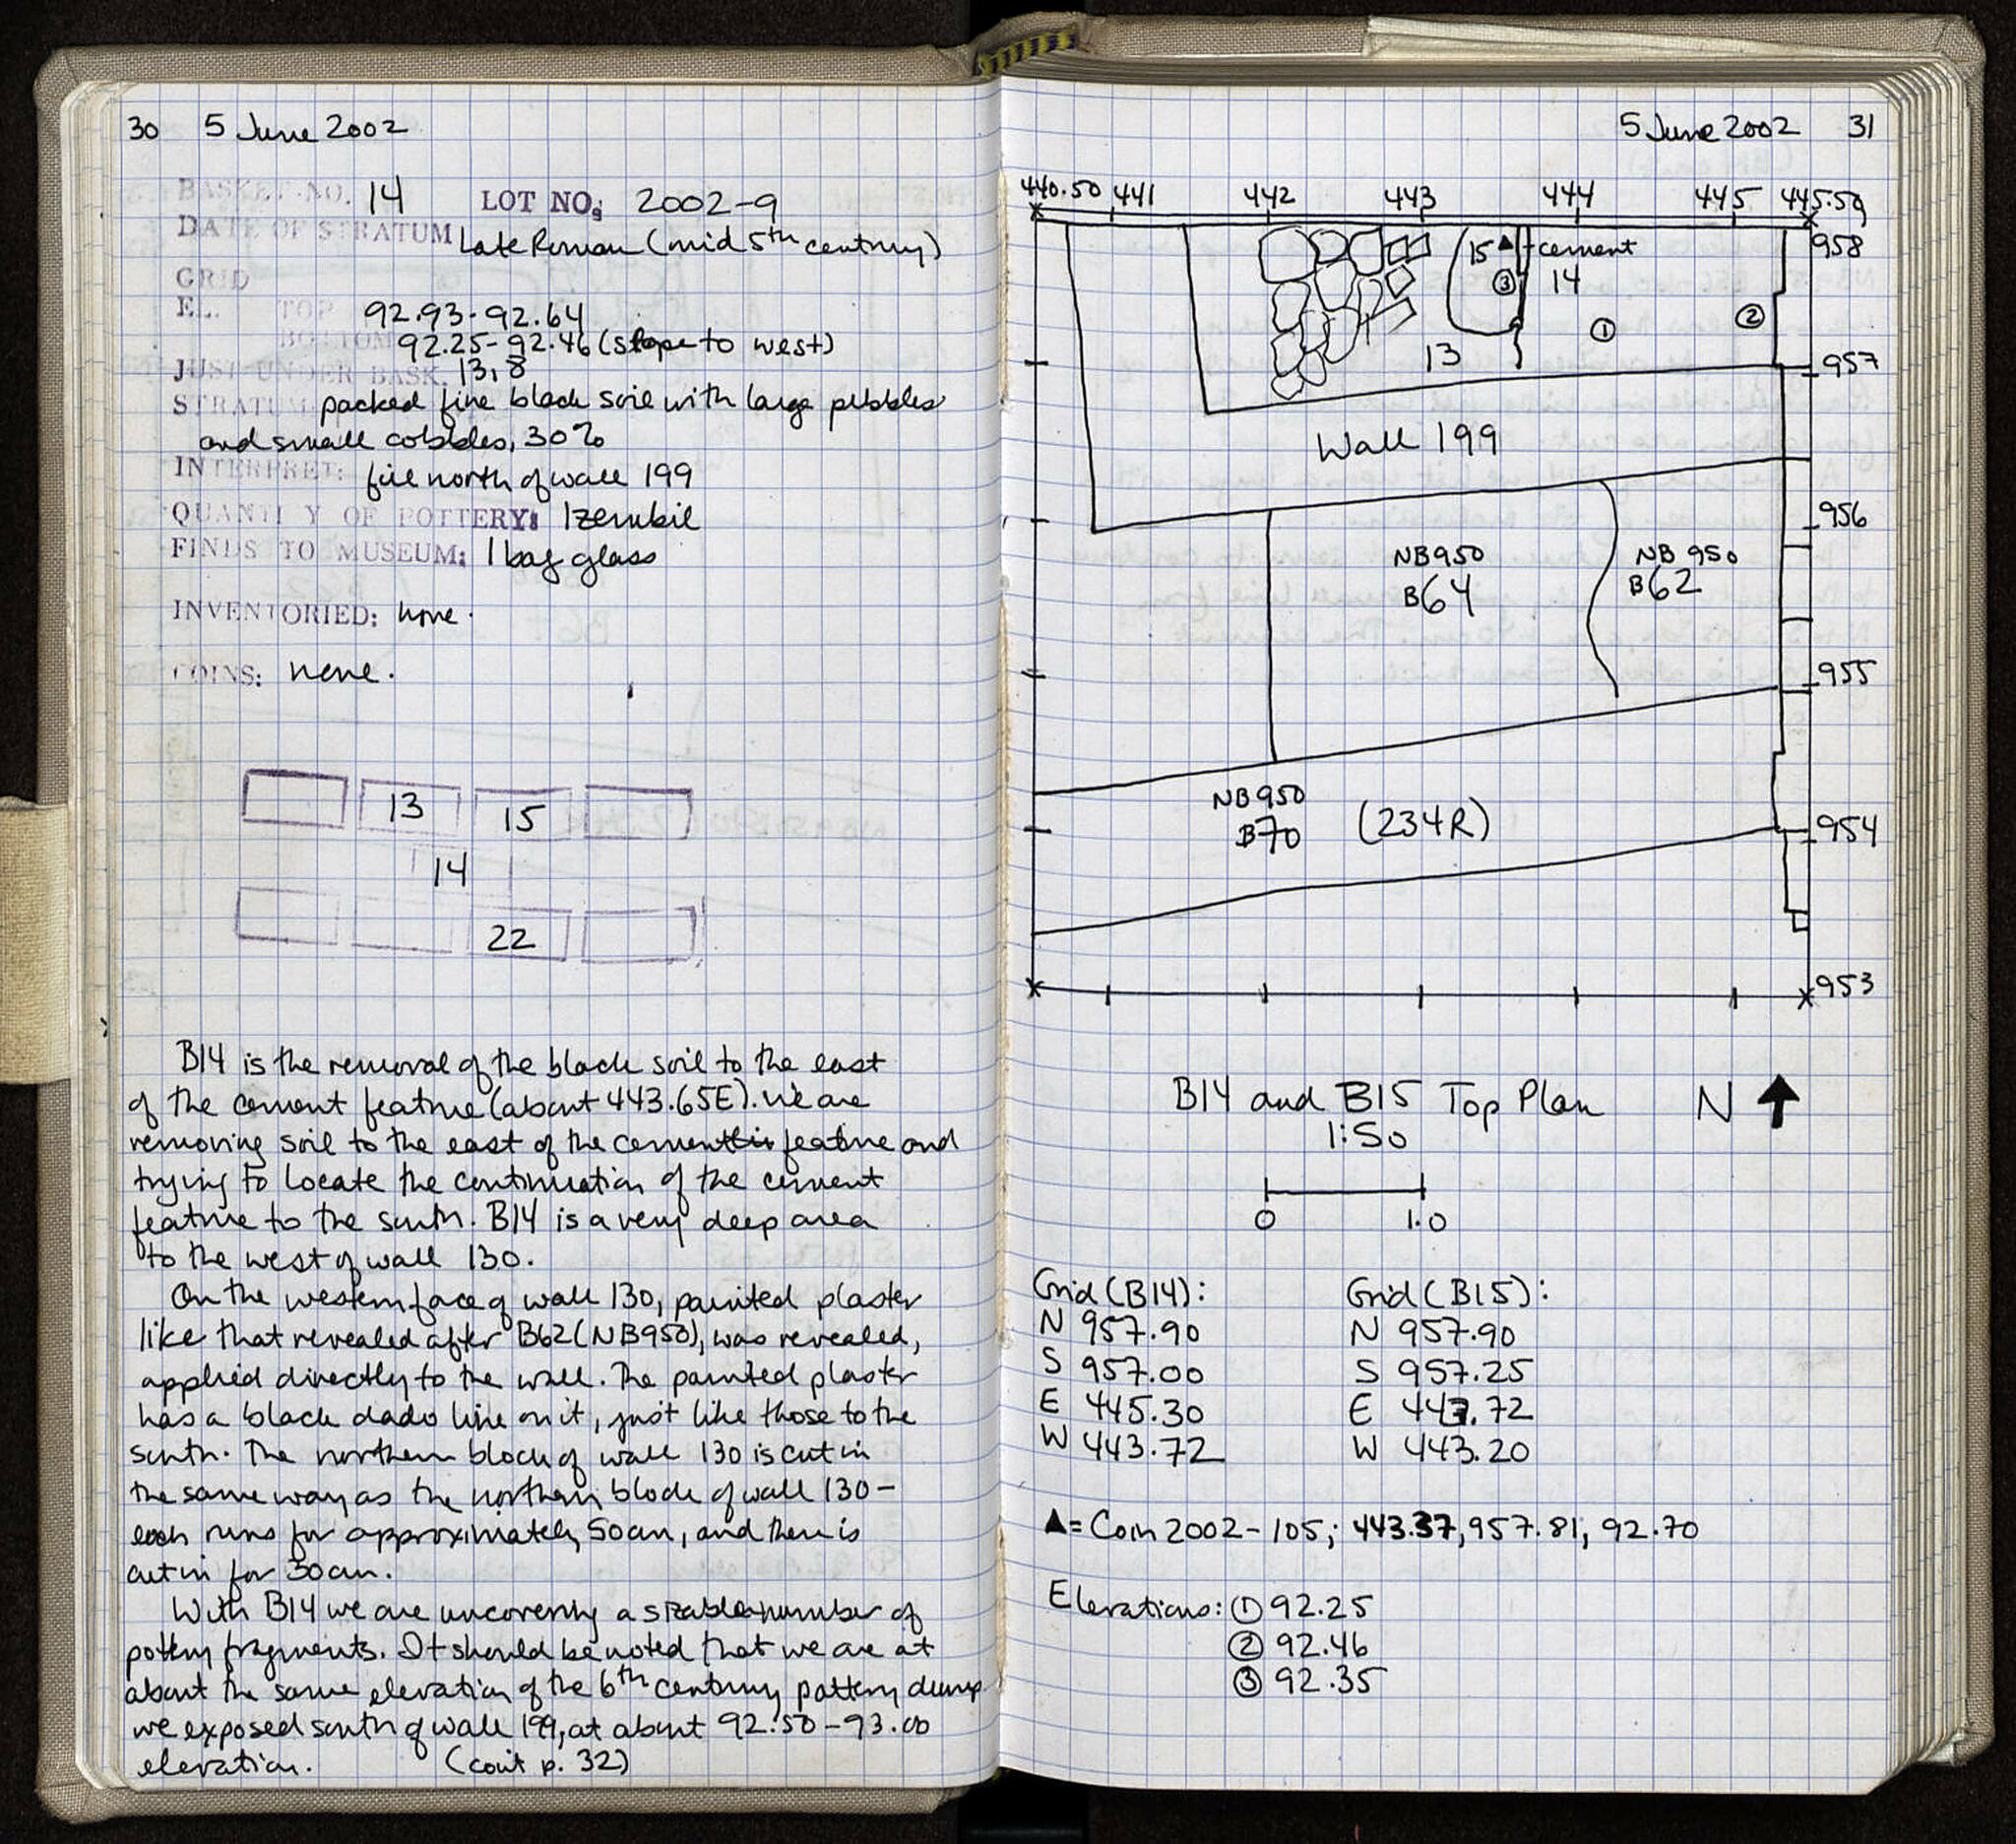 30 5 June 2002
BASKET NO. 14 LOT NO. 2002-9
DATE OF STRATUM Late Roman (mid 5th century)
GRID
EL. TOP 92.93-92.64
BOTTOM 92.25-92.46 (slope to west)
JUST UNDER BASK. 13, 8
STRATUM packed fine black soil with large pebbles
and small cobbles, 30%
INTERPRET: fill north of wall 199
QUANTI Y OF POTTERY: 1 zembil
FINDS TO MUSEUM: 1 bag glass
INVENTORIED: none.
COINS: none.
13 15
14
22
B14 is the removal of the black soil to the east
of the cement feature (about 443.65E). We are
removing soil to the east of the cement feature and
trying to locate the continuation of the cement
feature to the south. B14 is a very deep area
to the west of wall 130.
On the western face of wall 130, painted plaster
like that revealed after B62 (NB950), was revealed,
applied directly to the wall. The painted plaster
has a black dado line on it, just like those to the
south. The northern block of wall 130 is cut in
the same way as the northern block of wall 130 -
each runs for approximately 50cm, and then is
cut in for 30cm.
With B14 we are uncovering a sizable number of
pottery fragments. It should be noted that we are at
about the same elevation of the 6th century pottery dump
we exposed south of wall 199, at about 92.50-93.00
elevation. (cont p. 32)
5 June 2002 31
440.50 441 442 443 444 445 445.50
958
15 cement
③ 14
① ②
13
957
Wall 199
956
NB950
B64
NB 950
B62
955
NB950
B70 (234R)
954
953
B14 and B15 Top Plan N
1:50
0 1.0
Grid (B14): Grid (B15):
N 957.90 N 957.90
S 957.00 S 957.25
E 445.30 E 443.72
W 443.72 W 443.20
▲ = Coin 2002-105; 443.37, 957.81, 92.70
Elevations: ① 92.25
② 92.46
③ 92.35